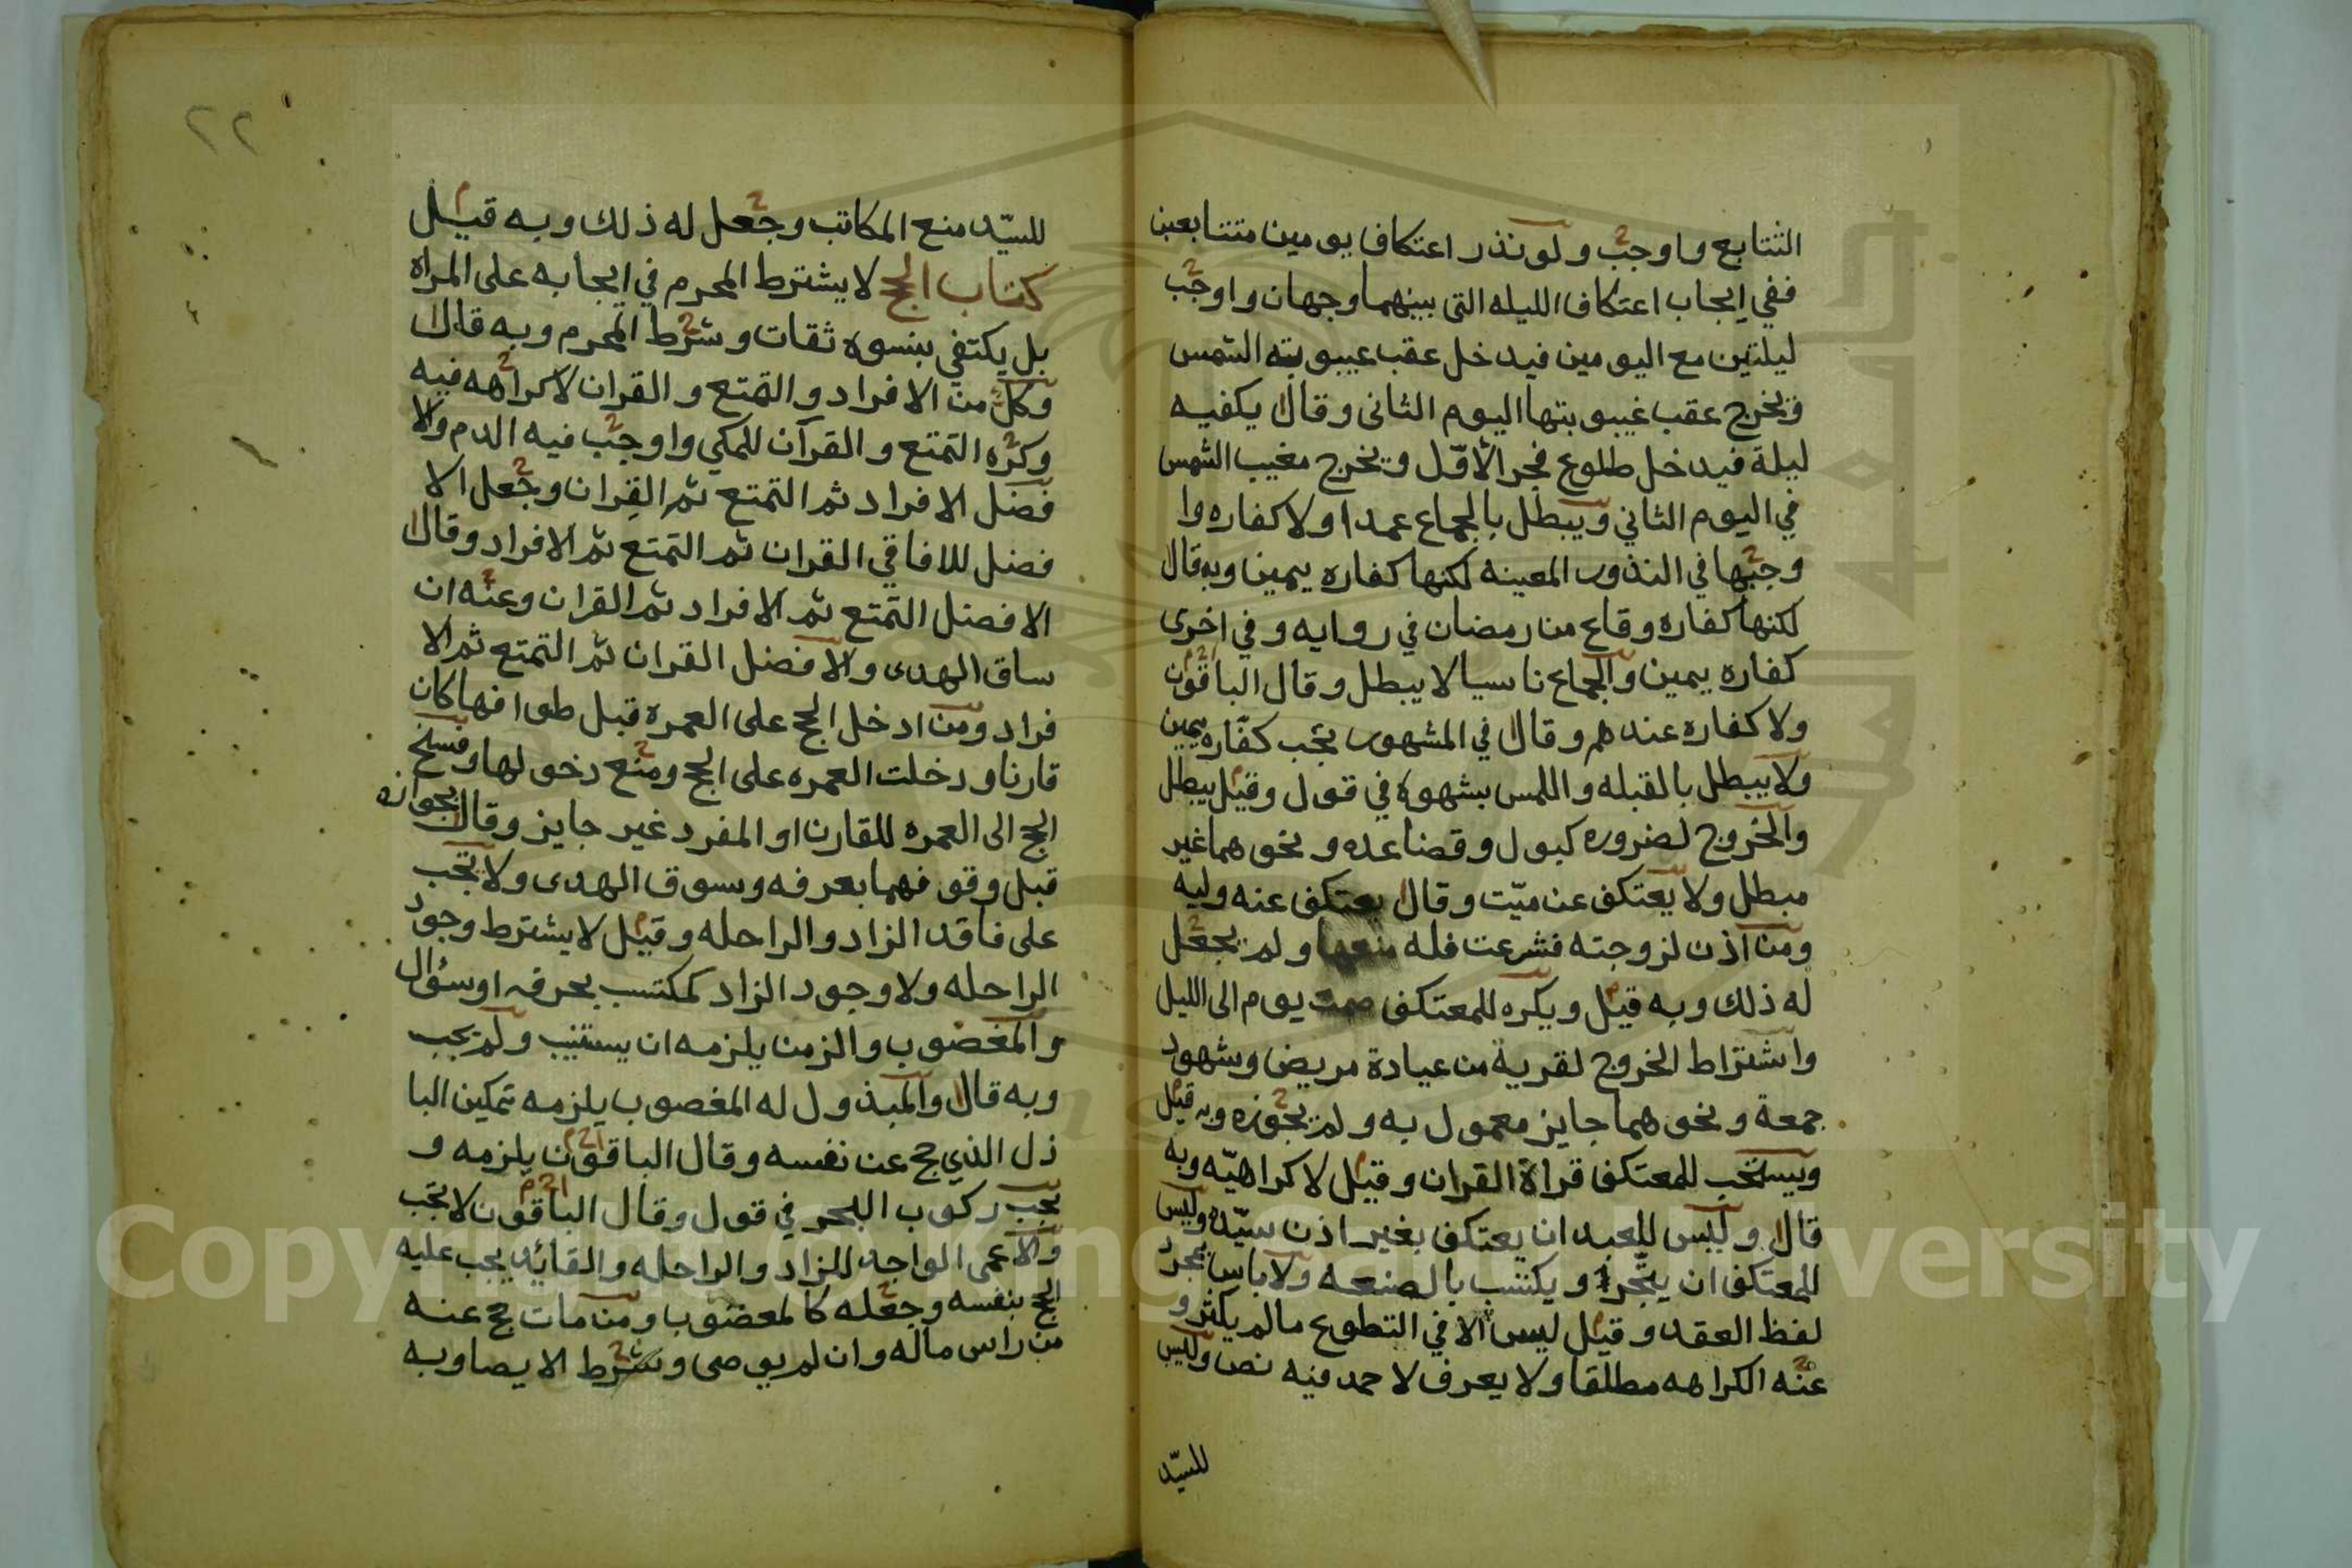 التتابع واوجب ولو نذر اعتكاف يومين متتابعين
ففي ايجاب اعتكاف الليله التى بينهما وجهان واوجب
ليلتين مع اليومين فيدخل عقب غيبوبته الشمس
ويخرج عقب غيبوبتها اليوم الثانى وقال يكفيه
ليلة فيدخل طلوع فجر الأوّل ويخرج مغيب الشمس
في اليوم الثاني ويبطل بالجماع عمدا ولا كفاره وا
وجبها في النذور المعينه لكنها كفاره يمين وبه قال
لكنها كفاره وقاع من رمضان في روايه وفي اخرى
كفاره يمين والجماع ناسيا لا يبطل وقال الباقون
ولا كفاره عندهم وقال في المشهور يجب كفّاره يمين
ولا يبطل بالقبله واللمس بشهوة في قول وقيل يبطل
والخروج لضروره كبول وقضا عده ونحوهما غير
مبطل ولا يعتكف عن ميّت وقال يعتكف عنه وليه
ومن اذن لزوجته فشرعت فله منعها ولم يجعل
له ذلك وبه قيل ويكره للمعتكف صمت يوم الى الليل
واشتراط الخروج لقربة من عيادة مريض وشهود
جمعة ونحوهما جايز معمول به ولم يجوزه وبه قيل
ويستحب للمعتكف قراة القران وقيل لا كراهيّه وبه
قال وليس للعبد ان يعتكف بغير اذن سيّده وليس
للمعتكف ان يتجر او يكتسب بالصنعه ولا باس بمجرد
لفظ العقد وقيل ليس الا في التطوع مالم يكثر و
عنه الكراهه مطلقا ولا يعرف لاحمد فيه نص وليس
للسيّد
٢٢
للسيّد منع المكاتب وجعل له ذلك وبه قيل
كتاب الحج لا يشترط المحرم في ايجابه على المراه
بل يكتفي بنسوه ثقات وشرط المحرم وبه قال
وكل من الافراد والتمتع والقران لا كراهه فيه
وكره التمتع والقرآن للمكي واوجب فيه الدم والا
فضل الافراد ثم التمتع ثم القِران وجعل الا
فضل للافاقي القران ثم التمتع ثم الافراد وقال
الافضل التمتع ثم الافراد ثم القران وعنه ان
ساق الهدى والافضل القران ثم التمتع ثم الا
فراد ومن ادخل الحج على العمره قبل طوافها كان
قارنا ودخلت العمره على الحج ومنع دخولها وفسخ
الحج الى العمره للقارن او المفرد غير جايز وقال بجوازه
قبل وقوفهما بعرفه وسوق الهدى ولا يجب
على فاقد الزاد والراحله وقيل لا يشترط وجود
الراحله ولا وجود الزاد لمكتسب بحرفه او سؤال
والمغضوب والزمن يلزمه ان يستنيب ولم يجب
وبه قال والمبذول له المغصوب يلزمه تمكين البا
ذل الذي حج عن نفسه وقال الباقون يلزمه و
يجب ركوب البحر في قول وقال الباقون لا يجب
والاعمى الواجد للزاد والراحله والقائد يجب عليه
الحج بنفسه وجعله كالمعضوب ومن مات حج عنه
من راس ماله وان لم يوصى وشرط الايصا وبه
Copyright © King Saud University